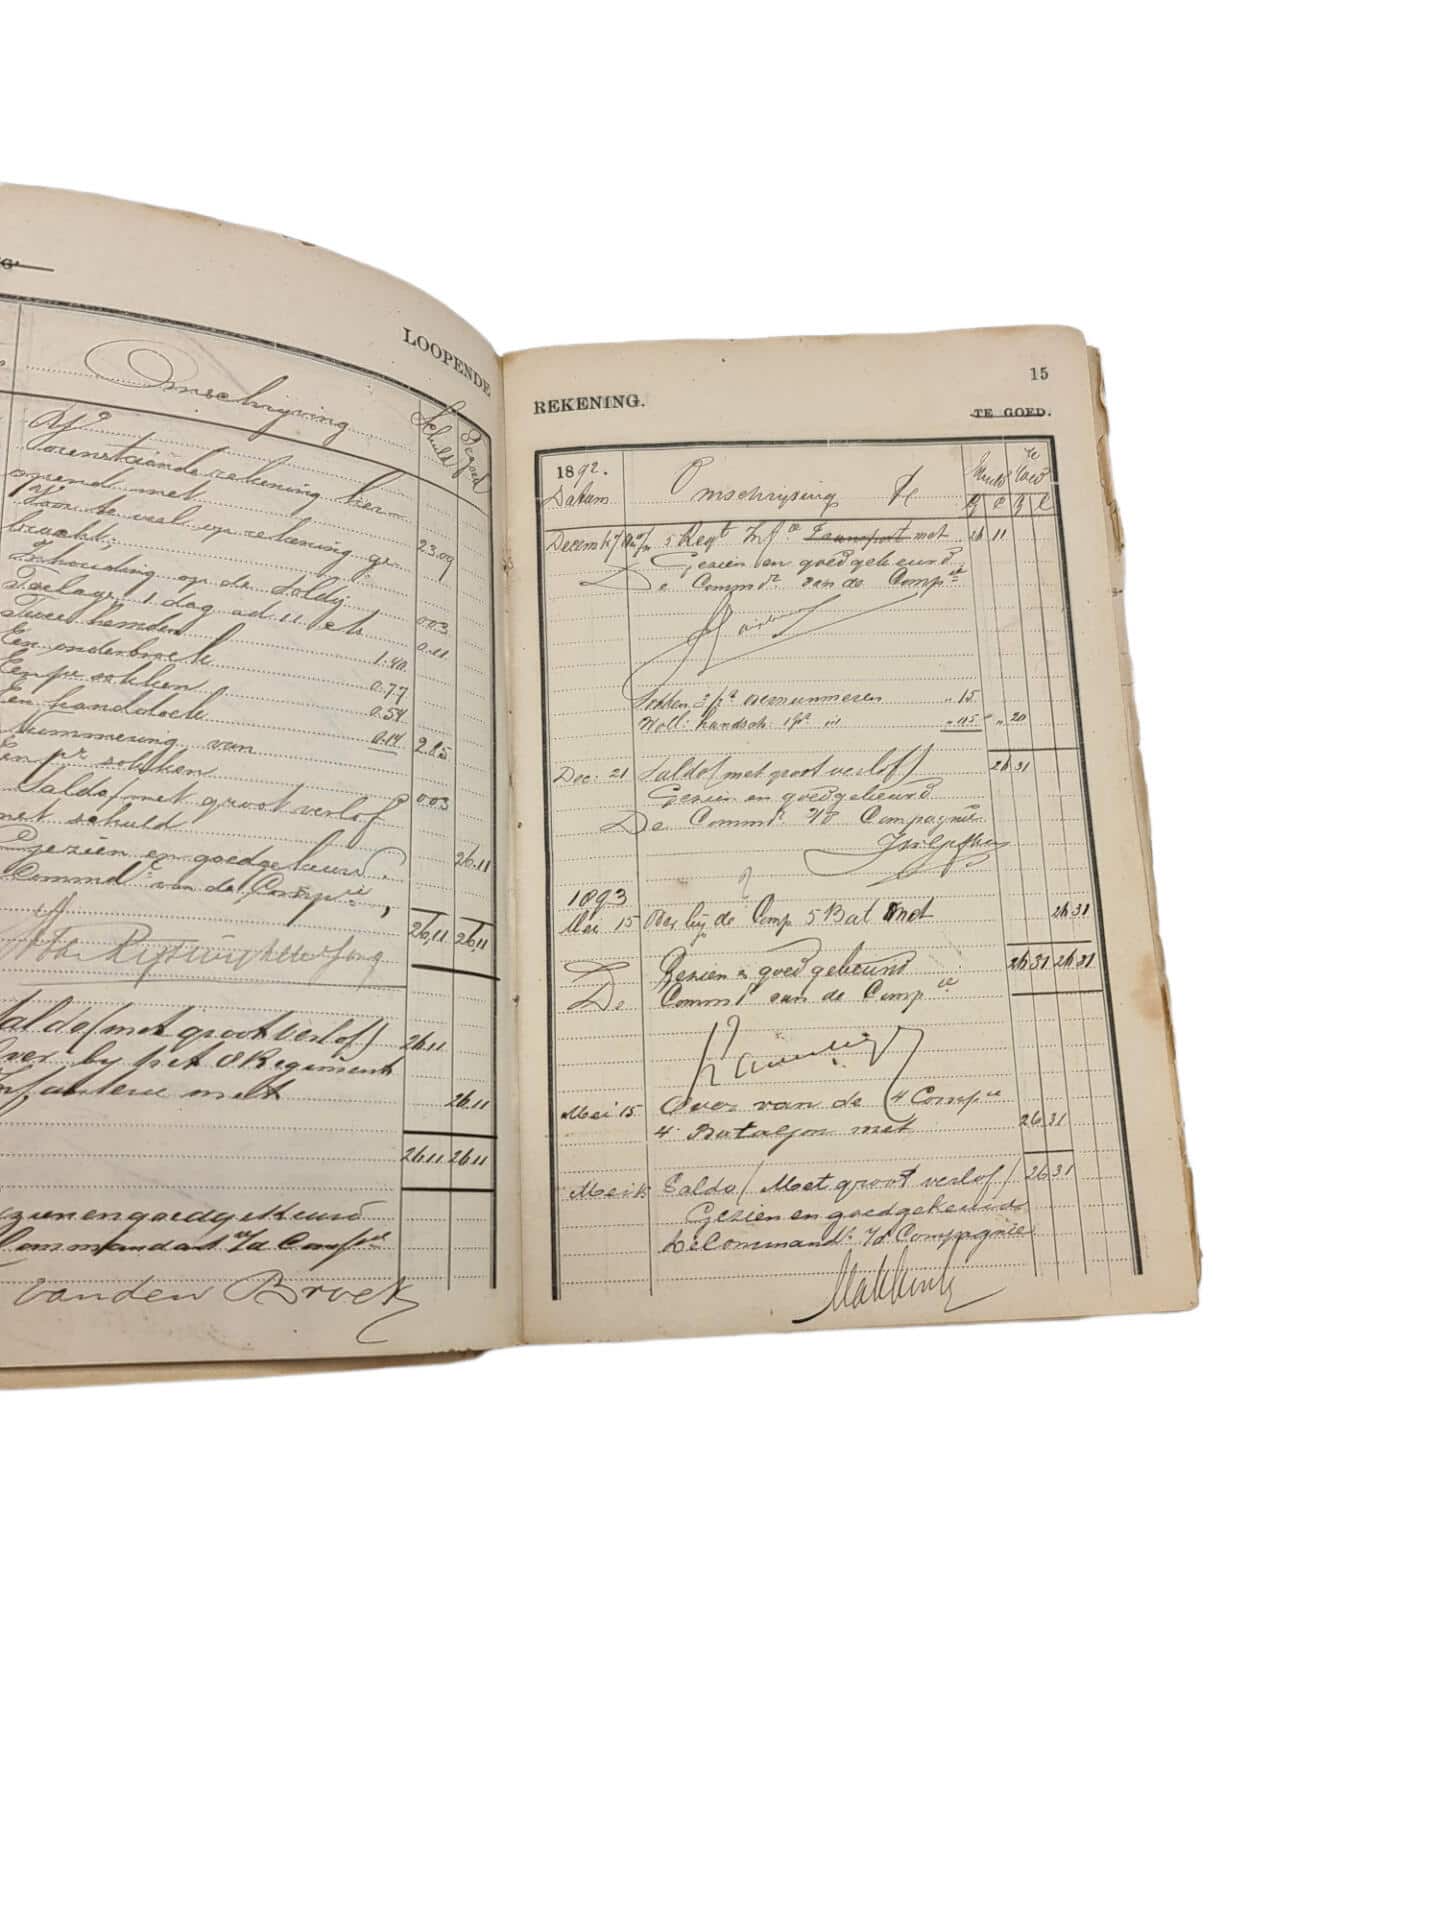 LOOPENDE
Omschrijving
Schuld
Tegoed
Voorenstaande rekening hier-
opend met 23.09
Voor te veel op rekening ge-
bracht;
Inhouding op de soldij 0.03
Toelage 1 dag ad 11 cts 0.11
Twee hemden 1.40
Een onderbroek 0.77
Een pr sokken 0.54
Een handdoek 0.14 2.85
Nummering van
Een pr sokken 0.03
Saldo (met groot verlof
met schuld 26.11
Gezien en goedgekeurd.
Commdt van de Compie,
26,11 26,11
Saldo (met groot verlof) 26.11
Over bij het 8 Regiment
Infanterie met 26.11
26.11 26.11
Gezien en goedgekeurd
Commandant v/d Compie
van den Broek
15
REKENING.
TE GOED.
1892.
Datum
Omschrijving
Te
Goed
G C G C
5 Regt Infie Transport met 26 11
Gezien en goedgekeurd
De Commdt van de Compie
Sokken 2 pr vernummeren " 15
Woll: handsch: 1 pr " 05 " 20
Dec: 21 Saldo (met groot verlof) 26 31
Gezien en goedgekeurd
De Commdt v/d Compagnie
1893
Mei 15 Over bij de Comp 5 Bat met 26 31
26 31 26 31
Gezien en goedgekeurd
De Commdt van de Compie
Mei 15 Over van de 4 Compie
4e Bataljon met 26 31
Mei 15 Saldo (Met groot verlof) 26 31
Gezien en goedgekeurd
De Commandt v/d Compagnie